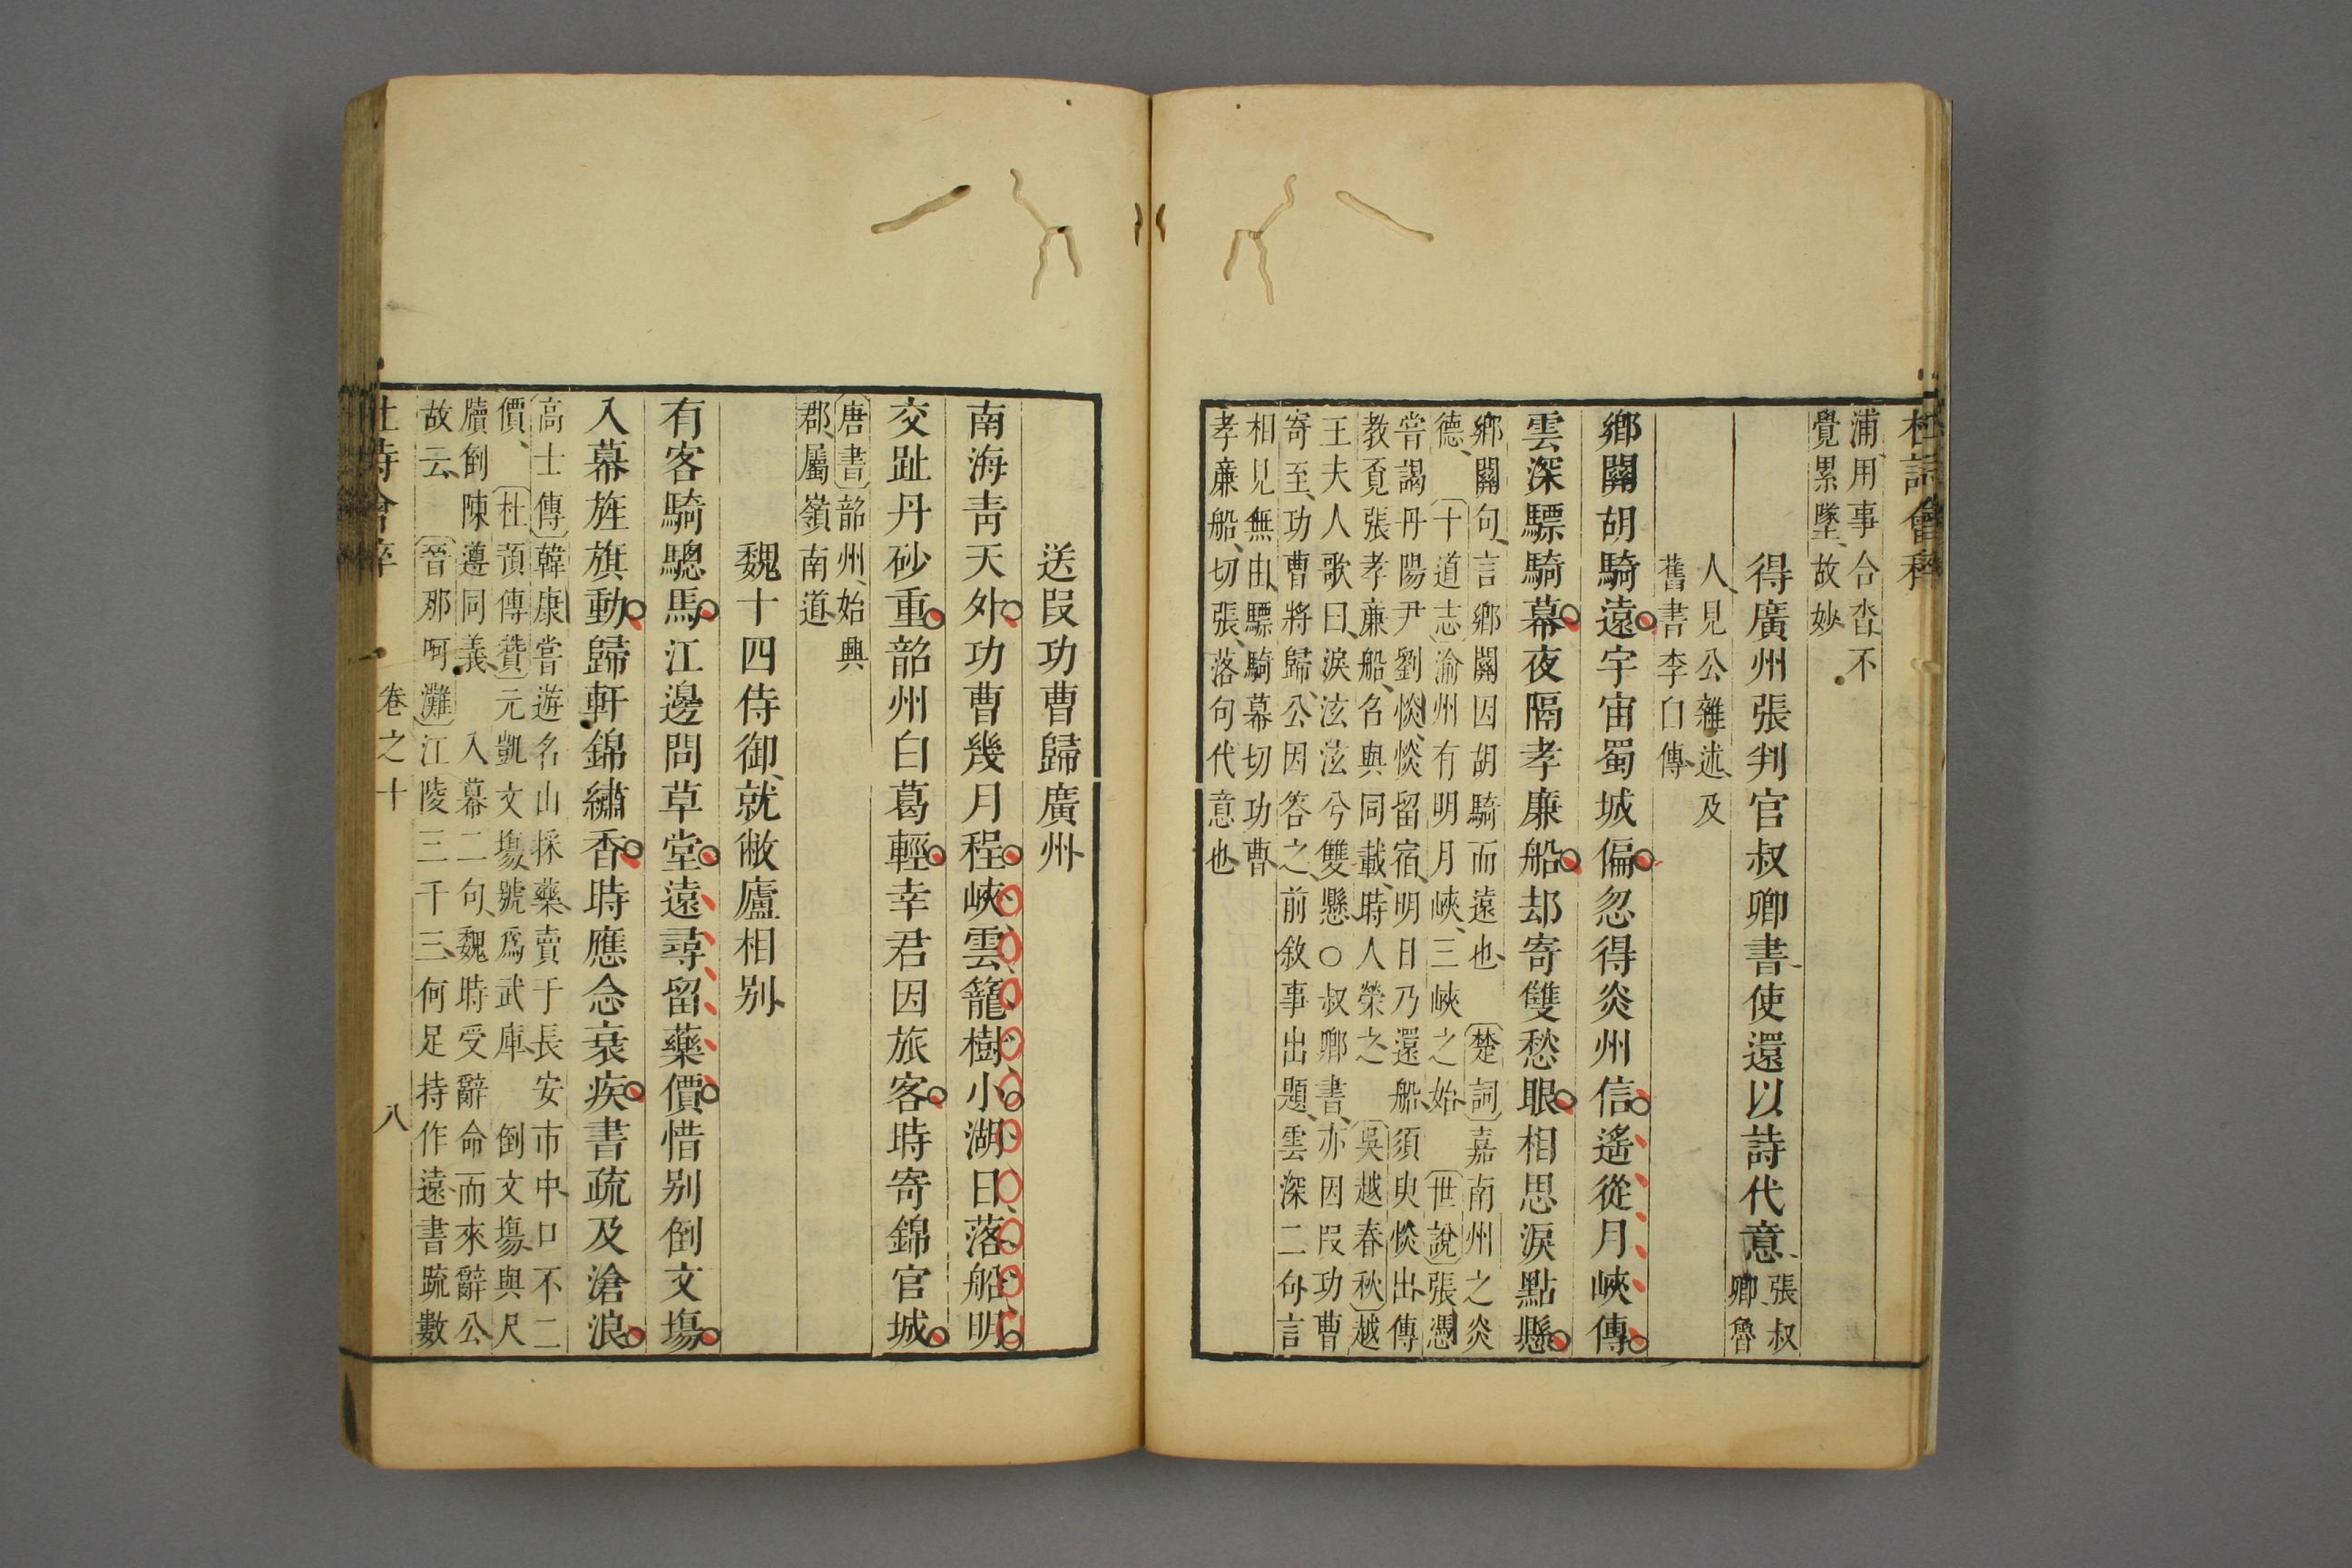 杜詩會稡
浦用事合沓不
覺累墜故妙
得廣州張判官叔卿書使還以詩代意
張叔
卿魯
人見公雜述及
舊書李白傳
鄉關胡騎遠宇宙蜀城偏忽得炎州信遙從月峽傳
雲深驃騎幕夜隔孝廉船却寄雙愁眼相思淚點懸
鄉關句言鄉關因胡騎而遠也 楚詞嘉南州之炎
德 十道志渝州有明月峽三峽之始 世說張憑
嘗謁丹陽尹劉惔惔留宿明日乃還船須臾惔出傳
教覓張孝廉船名與同載時人榮之 吳越春秋越
王夫人歌曰淚泫泫兮雙懸○叔卿書亦因叚功曹
寄至功曹將歸公因答之前敘事出題雲深二句言
相見無由驃騎幕切功曹
孝廉船切張落句代意也
送叚功曹歸廣州
南海青天外功曹幾月程峽雲籠樹小湖日落船明
交趾丹砂重韶州白葛輕幸君因旅客時寄錦官城
唐書韶州始興
郡屬嶺南道
魏十四侍御就敝廬相别
有客騎驄馬江邊問草堂遠尋留藥價惜别倒文塲
入幕旌旗動歸軒錦繡香時應念衰疾書疏及滄浪
高士傳韓康嘗遊名山採藥賣于長安市中口不二
價 杜預傳贊元凱文塲號爲武庫 倒文塲與尺
牘倒陳遵同義 入幕二句魏時受辭命而來辭公
故云 晉那呵灘江陵三千三何足持作遠書疏數
杜詩會稡 卷之十 八